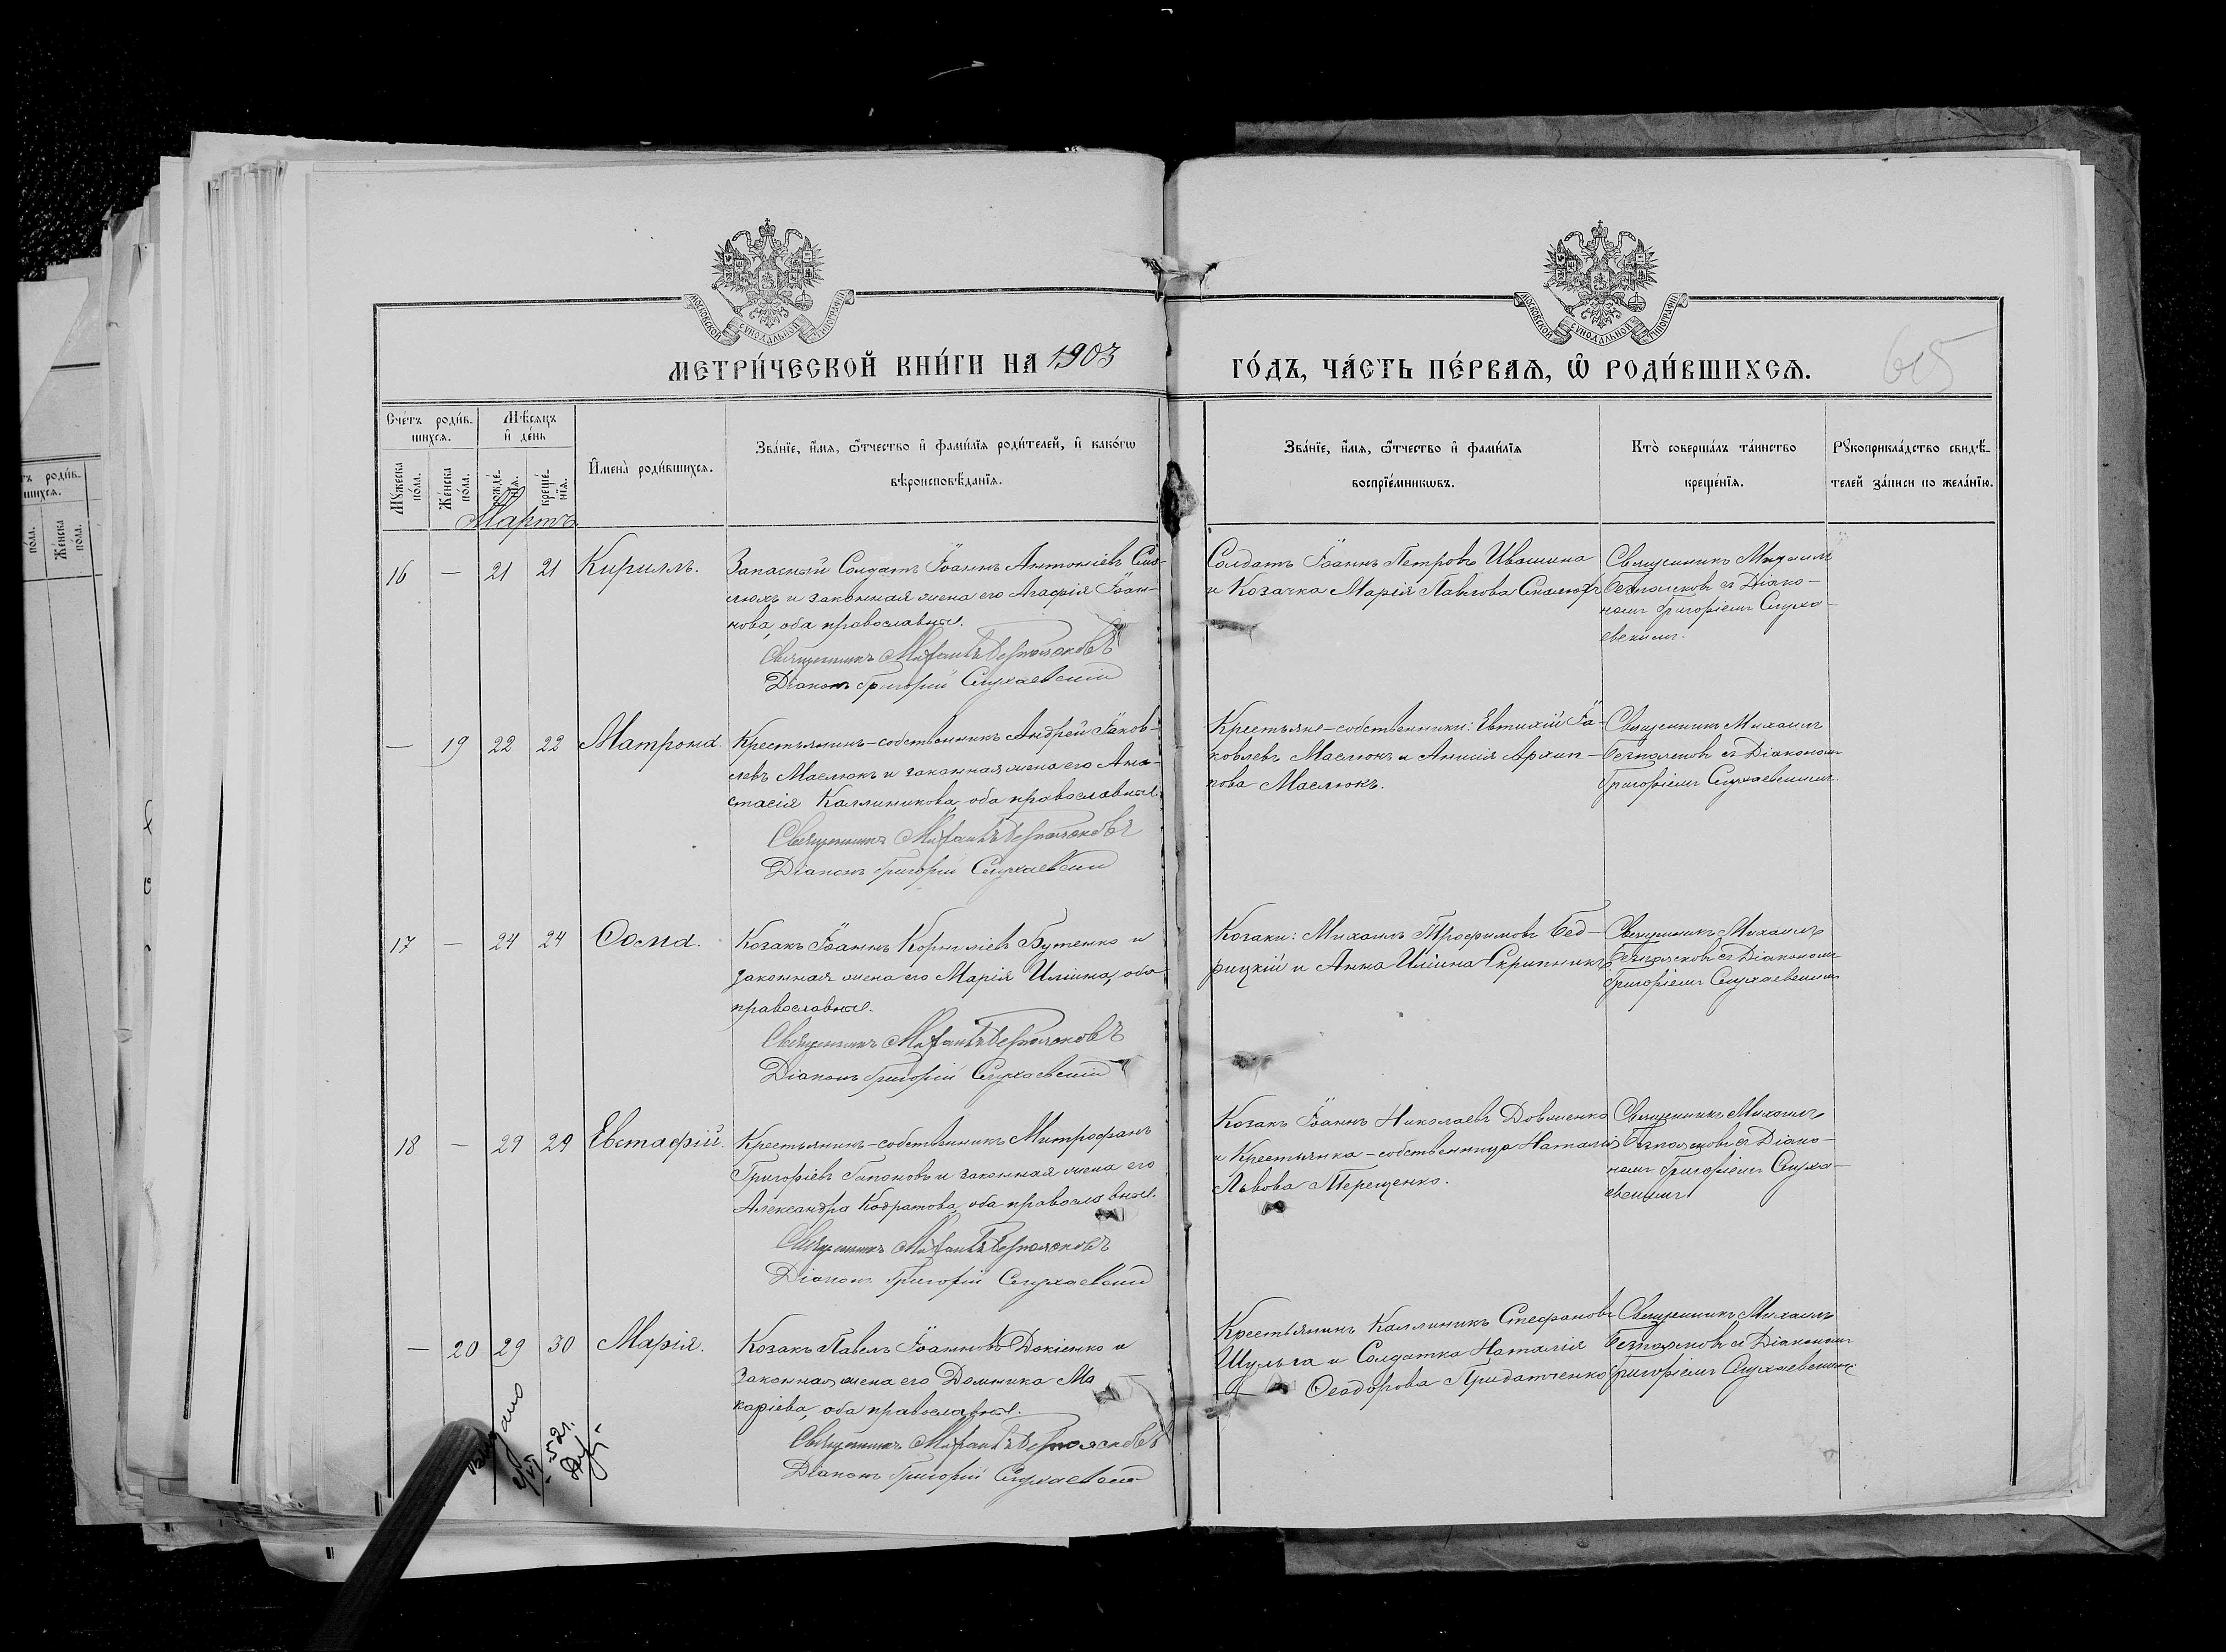 МОСКОВСКОЙ СѴНОДАЛЬНОЙ ТИПОГРАФІИ
МОСКОВСКОЙ СѴНОДАЛЬНОЙ ТИПОГРАФІИ
МЕТРИ́ЧЕСКОЙ КНИ́ГИ НА 1903
ГО́ДЪ, ЧА́СТЬ ПЕ́РВАѦ, Ѡ РОДИ́ВШИХСѦ.
615
Сче́тъ роди́в-
шихсѧ.
Мѣ́сѧцъ
и҆ де́нь
Мꙋ́жеска
по́ла.
Же́нска
по́ла.
рожде́-
нїѧ.
креще́-
нїѧ.
И҆мена̀ роди́вшихсѧ.
Зва́нїе, и҆́мѧ, ѻ҆́тчество и҆ фами́лїѧ роди́телей, и҆ како́гѡ
вѣроисповѣ́данїѧ.
Зва́нїе, и҆́мѧ, ѻ҆́тчество и҆ фами́лїѧ
воспрїе́мникѡвъ.
Кто̀ соверша́лъ та́инство
креще́нїѧ.
Рꙋкоприкла́дство свидѣ́-
телей за́писи по жела́нїю.
Мартъ
16 — 21 21 Кириллъ.
Запасный Солдатъ Іоаннъ Антоніевъ
и законная жена его Агафія Іоан-
нова, оба православные.
Священникъ Михаилъ Безпоясковъ
Діаконъ Григорій Слухаевскій
Солдатъ Іоаннъ Петровъ Ивашина
и Козачка Марія Павлова
Священникъ Михаилъ
Безпоясковъ съ Діако-
номъ Григоріемъ Слуха-
евскимъ.
— 19 22 22 Матрона.
Крестьянинъ-собственникъ Андрей Іаков-
левъ Маслюкъ и законная жена его Ана-
стасія Каллиникова, оба православные.
Священникъ Михаилъ Безпоясковъ
Діаконъ Григорій Слухаевскій
Крестьяне-собственники: Евтихій Іа-
ковлевъ Маслюкъ и Анисія Архип-
пова Маслюкъ.
Священникъ Михаилъ
Безпоясковъ съ Діакономъ
Григоріемъ Слухаевскимъ.
17 — 24 24 Ѳома.
Козакъ Іоаннъ Корниліевъ Бутенко и
законная жена его Марія Иліина, оба
православные.
Священникъ Михаилъ Безпоясковъ
Діаконъ Григорій Слухаевскій
Козаки: Михаилъ Трофимовъ Бед-
рицкій и Анна Иліина Скрипникъ
Священникъ Михаилъ
Безпоясковъ съ Діакономъ
Григоріемъ Слухаевскимъ
18 — 29 29 Евстафій.
Крестьянинъ-собственникъ Митрофанъ
Григоріевъ Гапоновъ и законная жена его
Александра Кодратова, оба православные.
Священникъ Михаилъ Безпоясковъ
Діаконъ Григорій Слухаевскій
Козакъ Іоаннъ Николаевъ Довженко
и Крестьянка-собственница Наталія
Львова Терещенко.
Священникъ Михаилъ
Безпоясковъ съ Діако-
номъ Григоріемъ Слуха-
евскимъ
— 20 29 30 Марія.
Козакъ Павелъ Іоанновъ Докіенко и
Законная жена его Домника Ма
каріева, оба православные.
Священникъ Михаилъ Безпоясковъ
Діаконъ Григорій Слухаевскій
Крестьянинъ Каллиникъ Стефановъ
Шульга и Солдатка Наталія
Ѳеодорова Придатченко
Священникъ Михаилъ
Безпоясковъ съ Діакономъ
Григоріемъ Слухаевскимъ